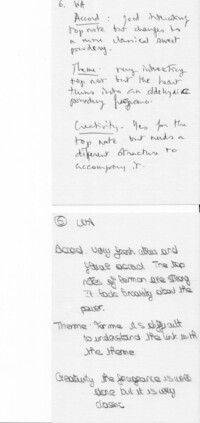 6. WA
Accord : good interesting
top note but changes to
a more classical sweet
powdery.
Theme - very interesting
top not but the heart
turns into an aldehydic
powdery fragrance.
Creativity - Yes for the
top note but needs a
different structure to
accompany it.
⑤ WA
Accord: Very fresh citrus and
floral accord. The top
notes of lemon are strong
It lacks tonality about the
power.
Theme: For me it is difficult
to understand the link with
the theme
Creativity: the fragrance is well
done but it is very
classic